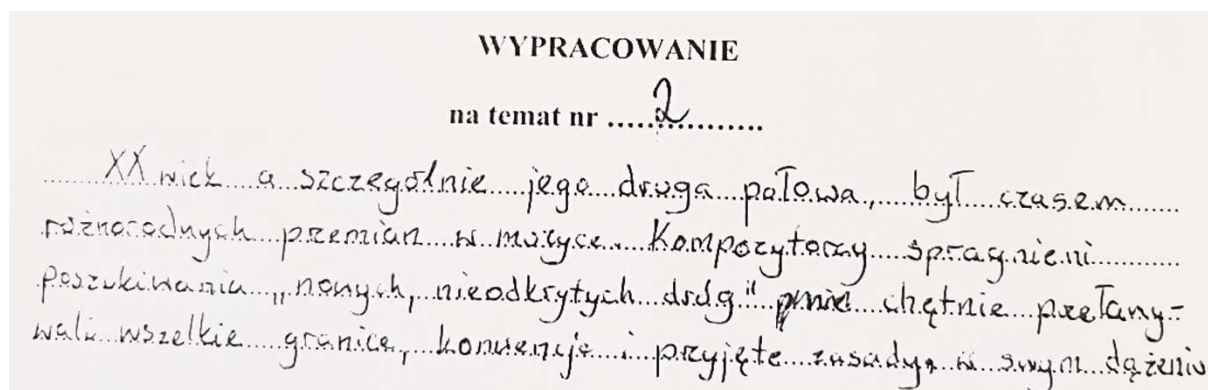 WYPRACOWANIE
na temat nr ......2............
XX wiek a szczególnie jego druga połowa, był czasem
różnorodnych przemian w muzyce. Kompozytorzy spragnieni
poszukiwania „nowych, nieodkrytych dróg" chętnie przełamy-
wali wszelkie granice, konwencje i przyjęte zasady, w swym dążeniu